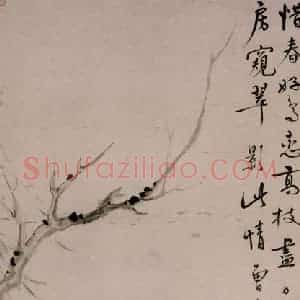 惜春好鳥戀高枝盡
房窺翠影此情曾
Shufaziliao.com